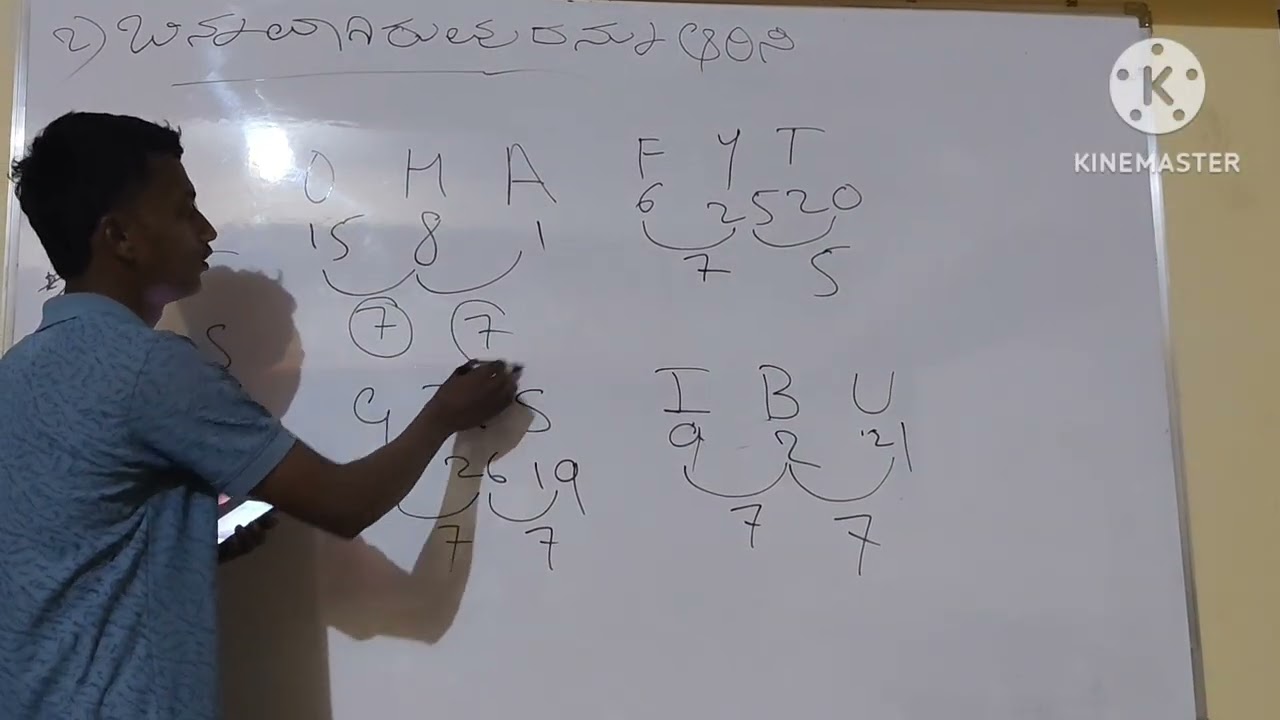 ೨) ಭಿನ್ನವಾಗಿರುವುದನ್ನು ಆರಿಸಿ
K
KINEMASTER
O H A
15 8 1
7 7
F Y T
6 25 20
7 5
S
G S
26 19
7 7
I B U
9 2 21
7 7